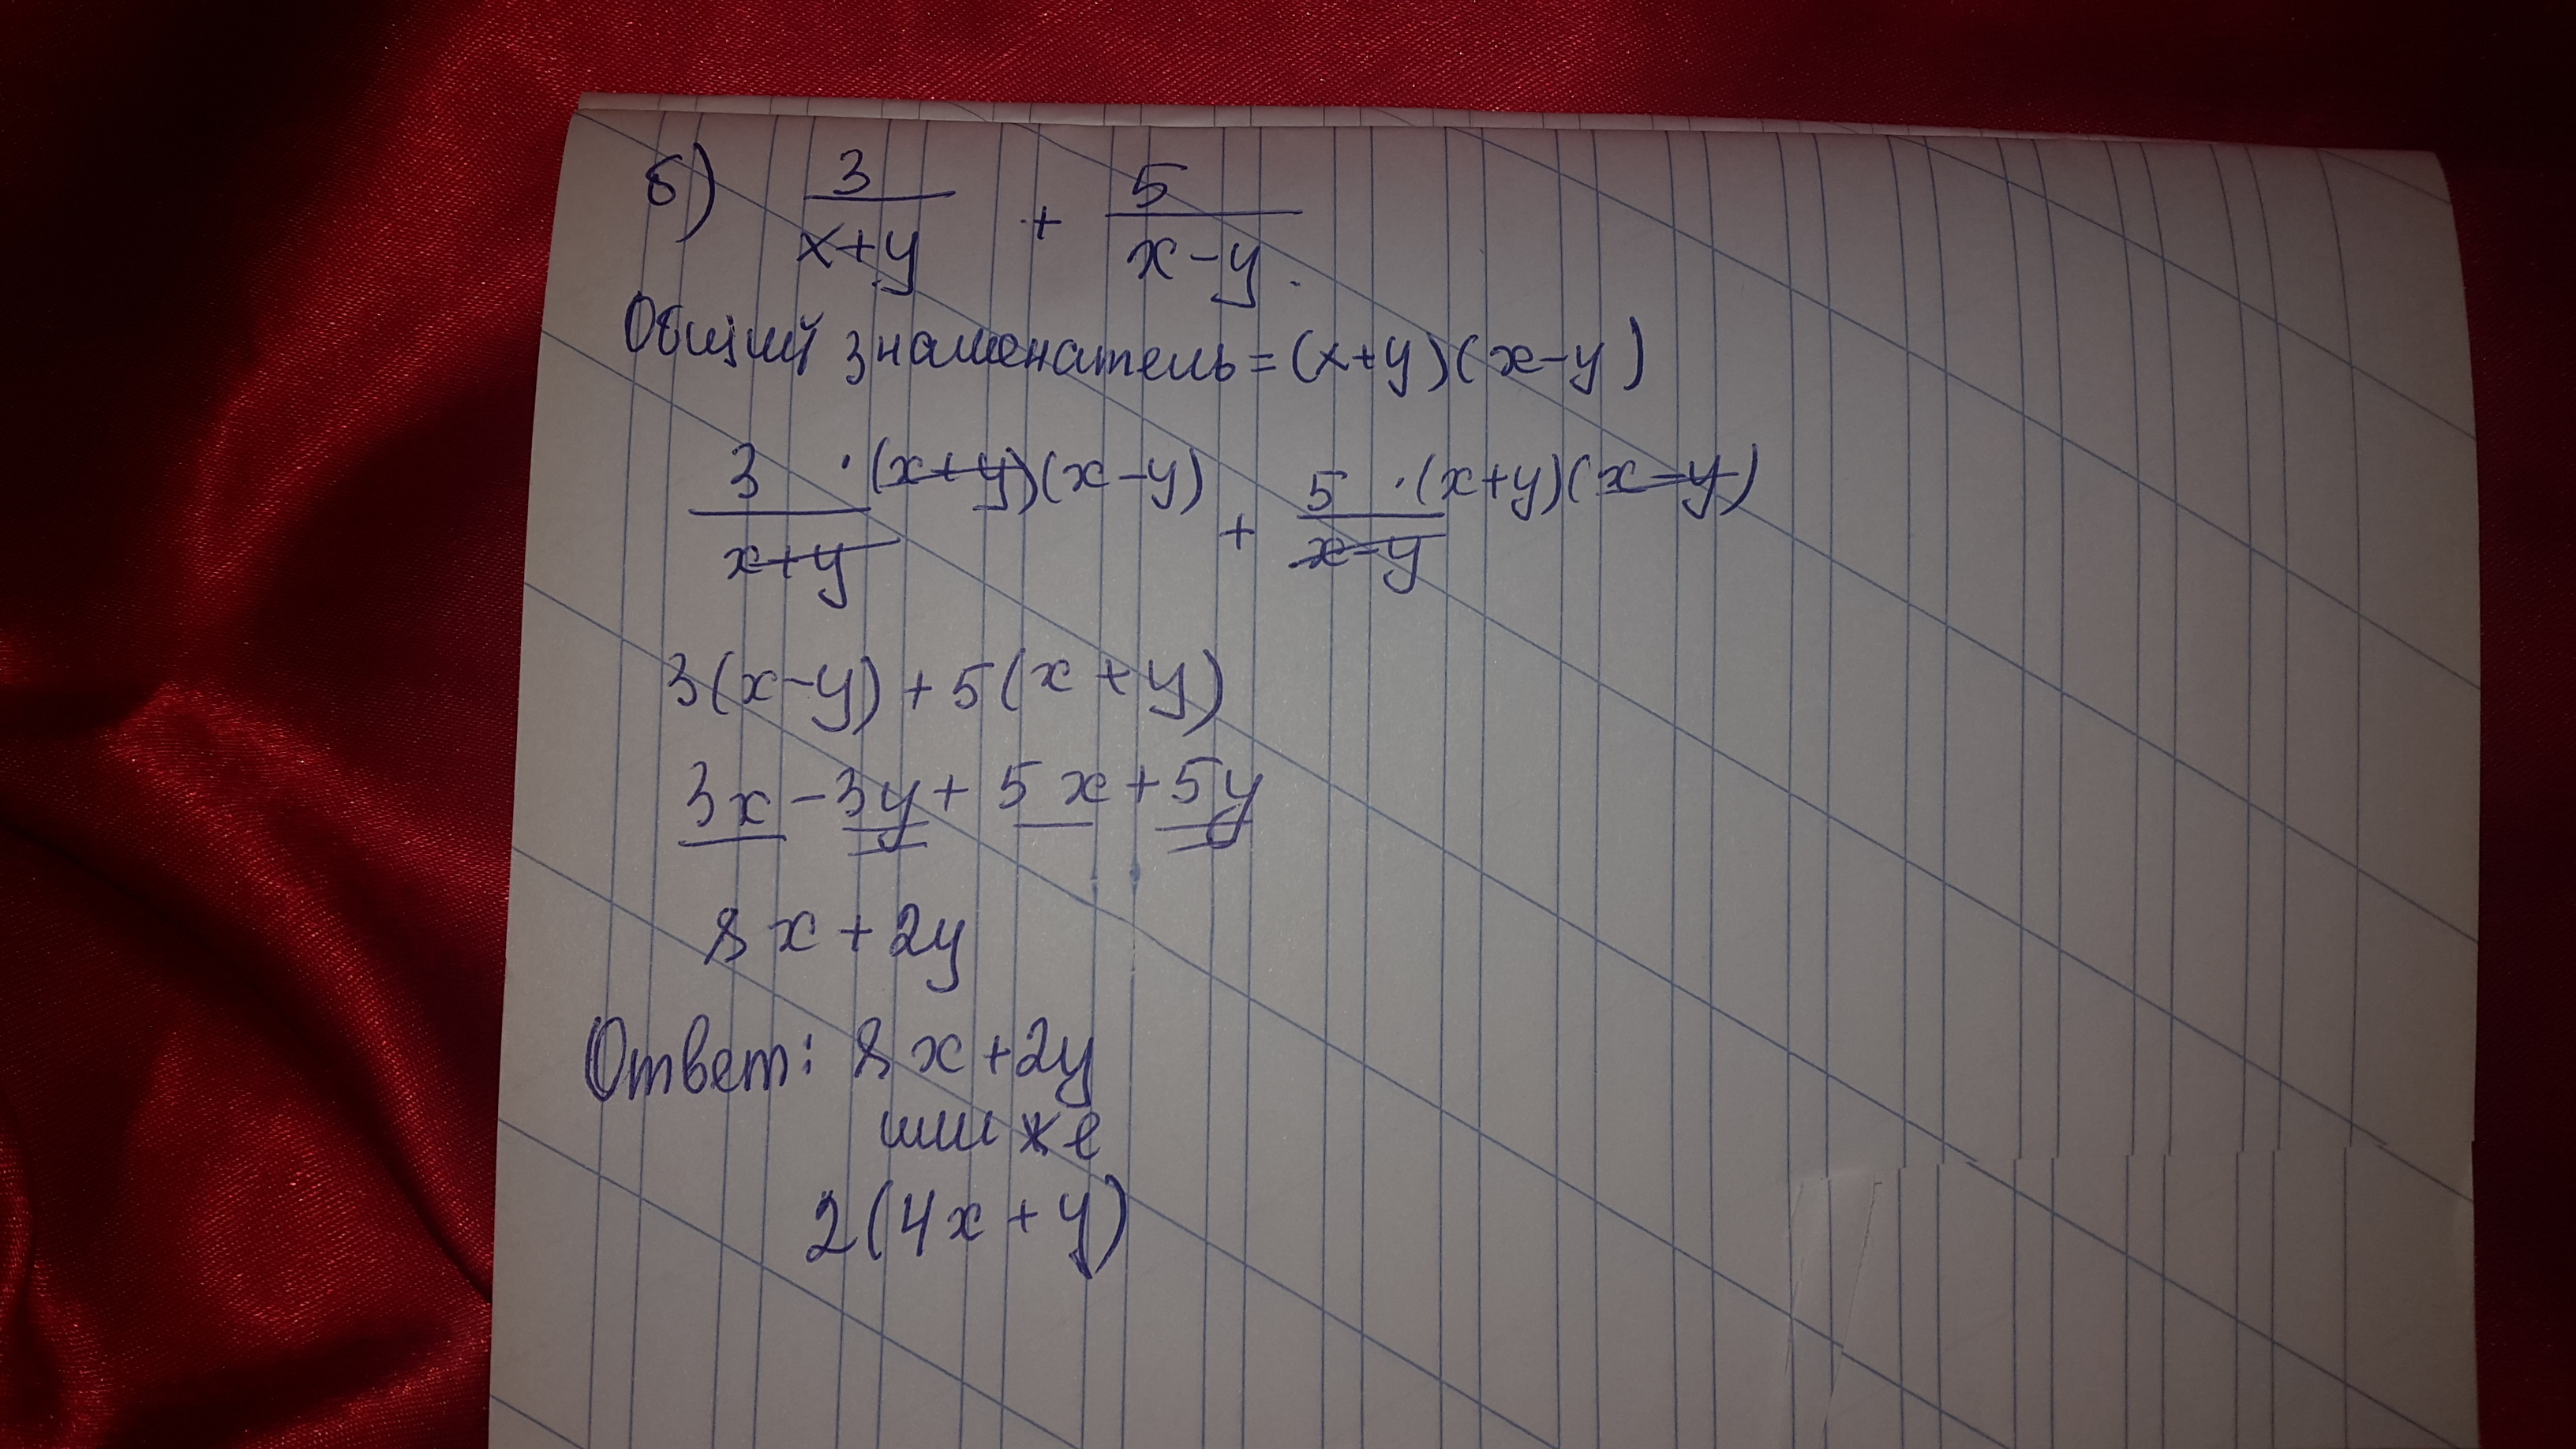 б) 3/(x+y) + 5/(x-y).
Общий знаменатель = (x+y)(x-y)
3/(x+y) · (x+y)(x-y) + 5/(x-y) · (x+y)(x-y)
3(x-y) + 5(x+y)
3x - 3y + 5x + 5y
8x + 2y
Ответ: 8x + 2y
или же
2(4x+y)